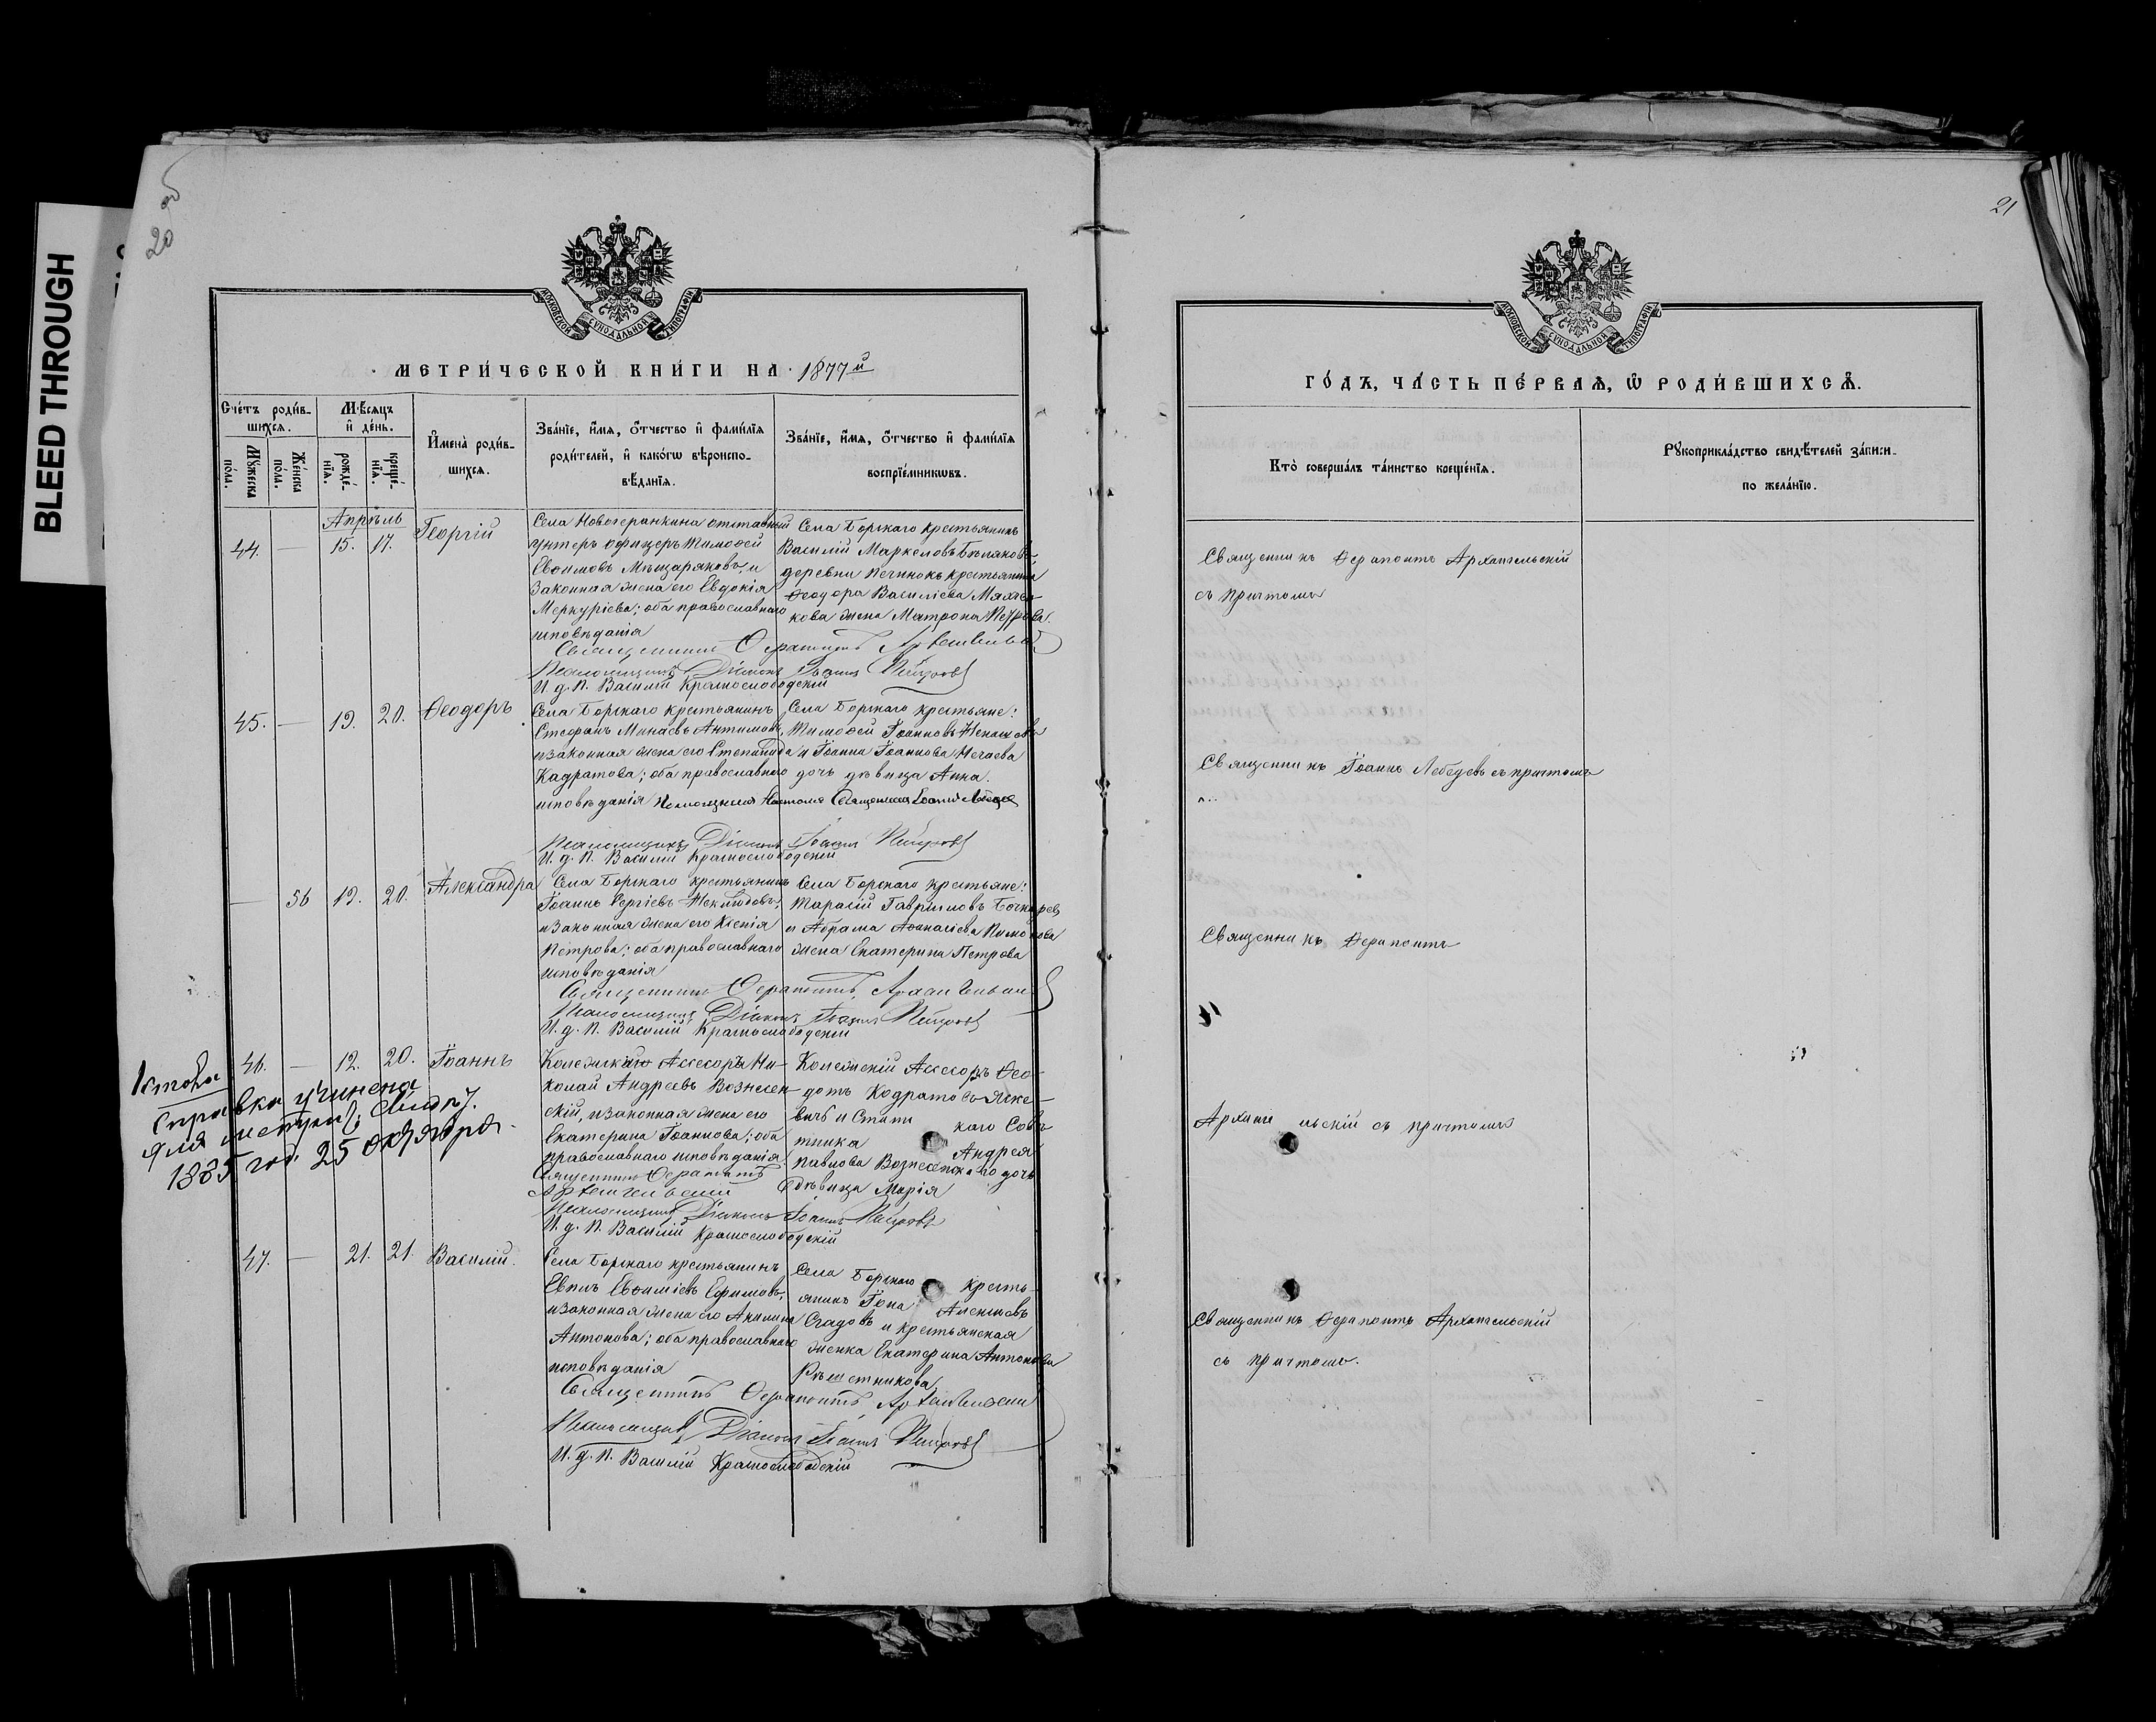 BLEED THROUGH
20 об
21
МОСКОВСКОЙ СУНОДАЛЬНОЙ ТУПОГРАФІИ
МЕТРИ́ЧЕСКОЙ КНИ́ГИ НА 1877й
Сче́тъ роди́в-
шихсѧ.
Мꙋ́жеска
по́ла.
Же́нска
по́ла.
Мѣ́сѧцъ
и҆ де́нь.
рожде́-
нїѧ.
креще́-
нїѧ.
И҆мена̀ роди́в-
шихсѧ.
Зва́нїе, и҆́мѧ, ѻ҆́тчество и҆ фами́лїѧ
роди́телей, и҆ како́гѡ вѣроиспо-
вѣ́данїѧ.
Зва́нїе, и҆́мѧ, ѻ҆́тчество и҆ фами́лїѧ
воспрїе́мникѡвъ.
Апрѣль
44. — 15. 17. Георгій
Села Новогеранкина отставный
унтеръ офицеръ Тимоѳей
Евѳимовъ Мѣщаряковъ, и
законная жена его Евдокія
Меркуріева; оба православнаго
исповѣданія
Села Борскаго крестьянинъ
Василій Маркеловъ Бѣляковъ
деревни крестьянина
Ѳеодора Василіева
кова жена Матрона Петрова.
Священникъ Ѳерапонтъ Архангельскій
Псаломщикъ Діаконъ Іоаннъ Петровъ
И. д. П. Василій Краснослободскій
45. — 19. 20. Ѳеодоръ
Села Борскаго крестьянинъ
Стефанъ Минаевъ Антимовъ,
и законная жена его Степанида
Кадратова; оба православнаго
исповѣданія
Села Борскаго крестьяне:
Тимоѳей Іоанновъ
и Іоанна Іоаннова Нечаева
дочь дѣвица Анна.
Помощникъ Настоят. Священникъ Іоаннъ Лебедевъ
Псаломщикъ Діаконъ Іоаннъ Петровъ
И. д. П. Василій Краснослободскій
— 56 19. 20. Александра
Села Борскаго крестьянинъ
Іоаннъ Сергіевъ
и законная жена его Ксенія
Петрова; оба православнаго
исповѣданія
Села Борскаго крестьяне:
Тарасій Гавриловъ Бочкарев
и Абрама Аѳанасіева
жена Екатерина Петрова
Священникъ Ѳерапонтъ Архангельскій
Псаломщикъ Діаконъ Іоаннъ Петровъ
И. д. П. Василій Краснослободскій
46. — 12. 20. Іоаннъ
справка учинена
для
1885 год 25 октября.
Коллежскій Ассесоръ Ни-
колай Андреевъ Вознесен-
скій, и законная жена его
Екатерина Іоаннова; оба
православнаго исповѣданія
Коллежскій Ассесоръ Ѳео-
дотъ Кодратовъ
и Статскаго Совѣ-
тника Андрея
Павлова Вознесенскаго дочь
дѣвица Марія
Священникъ Ѳерапонтъ
Архангельскій
Псаломщикъ Діаконъ Іоаннъ Петровъ
И. д. П. Василій Краснослободскій
47. — 21. 21. Василій.
Села Борскаго крестьянинъ
Евплъ Евѳиміевъ Ефимовъ,
и законная жена его Акилина
Антонова; оба православнаго
исповѣданія
Села Борскаго кресть-
янинъ Іона Алексіевъ
Садовъ и крестьянская
женка Екатерина Антонова
Рѣшетникова
Священникъ Ѳерапонтъ Архангельскій
Псаломщикъ Діаконъ Іоаннъ Петровъ
И. д. П. Василій Краснослободскій
МОСКОВСКОЙ СУНОДАЛЬНОЙ ТУПОГРАФІИ
ГО́ДЪ, ЧА́СТЬ ПЕ́РВАѦ, Ѡ҆ РОДИ́ВШИХСѦ.
Кто̀ соверша́лъ та́инство креще́нїѧ.
Рꙋкоприкла́дство свидѣ́телей за́писи
по жела́нїю.
Священникъ Ѳерапонтъ Архангельскій
съ причтомъ
Священникъ Іоаннъ Лебедевъ съ причтомъ
Священникъ Ѳерапонтъ
Архангельскій съ причтомъ
Священникъ Ѳерапонтъ Архангельскій
съ причтомъ.